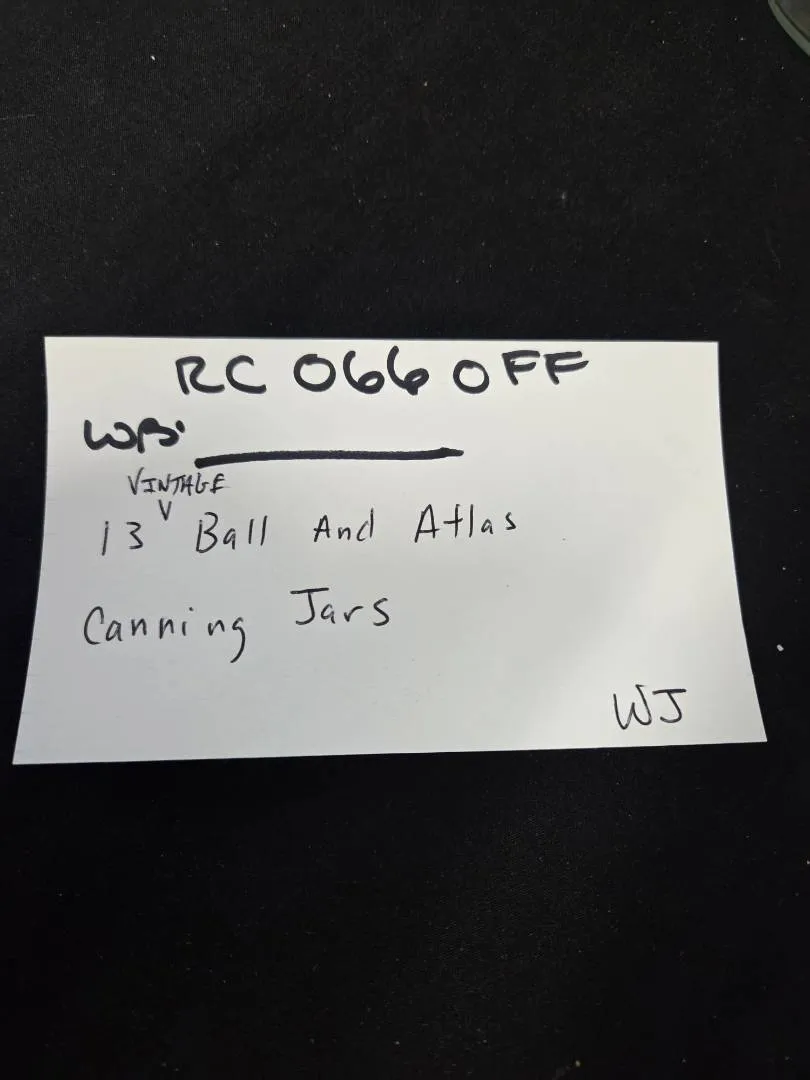 RC 066 OFF
WB:
VINTAGE
13 V Ball And Atlas
Canning Jars
WJ